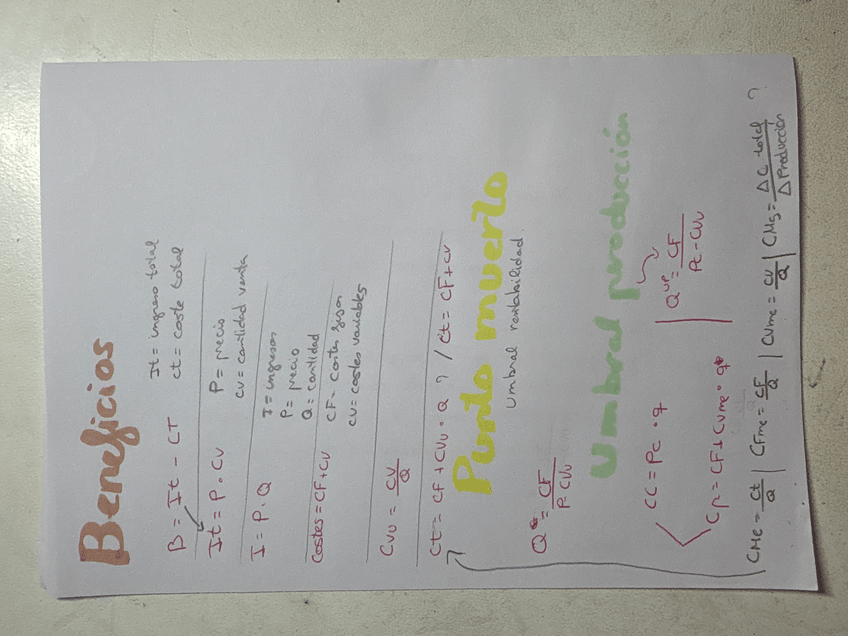 Beneficios
B = It - CT
It = ingreso total
ct = coste total
It = P. Cv
P = precio
cv = cantidad venta
I = P. Q
I = ingresos
P = precio
Q = cantidad
Costes = CF + CV
CF = costes fijos
CV = costes variables
CVU = CV/Q
Ct = CF + CVU · Q ? / Ct = CF + CV
Punto muerto
Umbral rentabilidad
Q* = CF/P. CVU
Umbral producción
CC = Pc · q
Cp = CF + CVme · q
Q^UP = CF/Pc - CVU
CMe = Ct/Q | CFme = CF/Q | CVme = CV/Q | CMg = Δ C total/Δ Producción ?